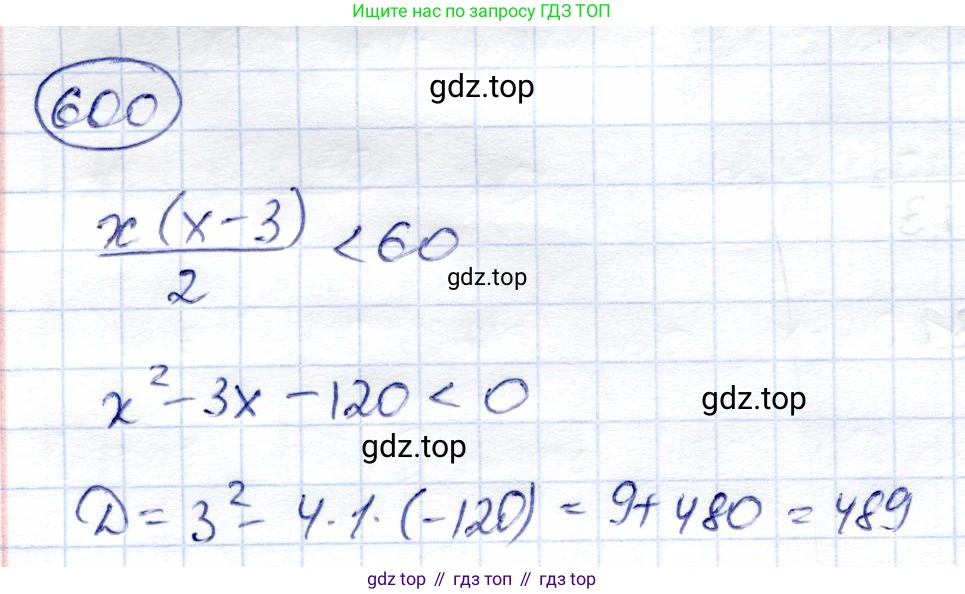 Ищите нас по запросу ГДЗ ТОП
600
gdz.top
x(x-3)/2 < 60
gdz.top
x² - 3x - 120 < 0
gdz.top
gdz.top
D = 3² - 4·1·(-120) = 9 + 480 = 489
gdz top // гдз топ // гдз top